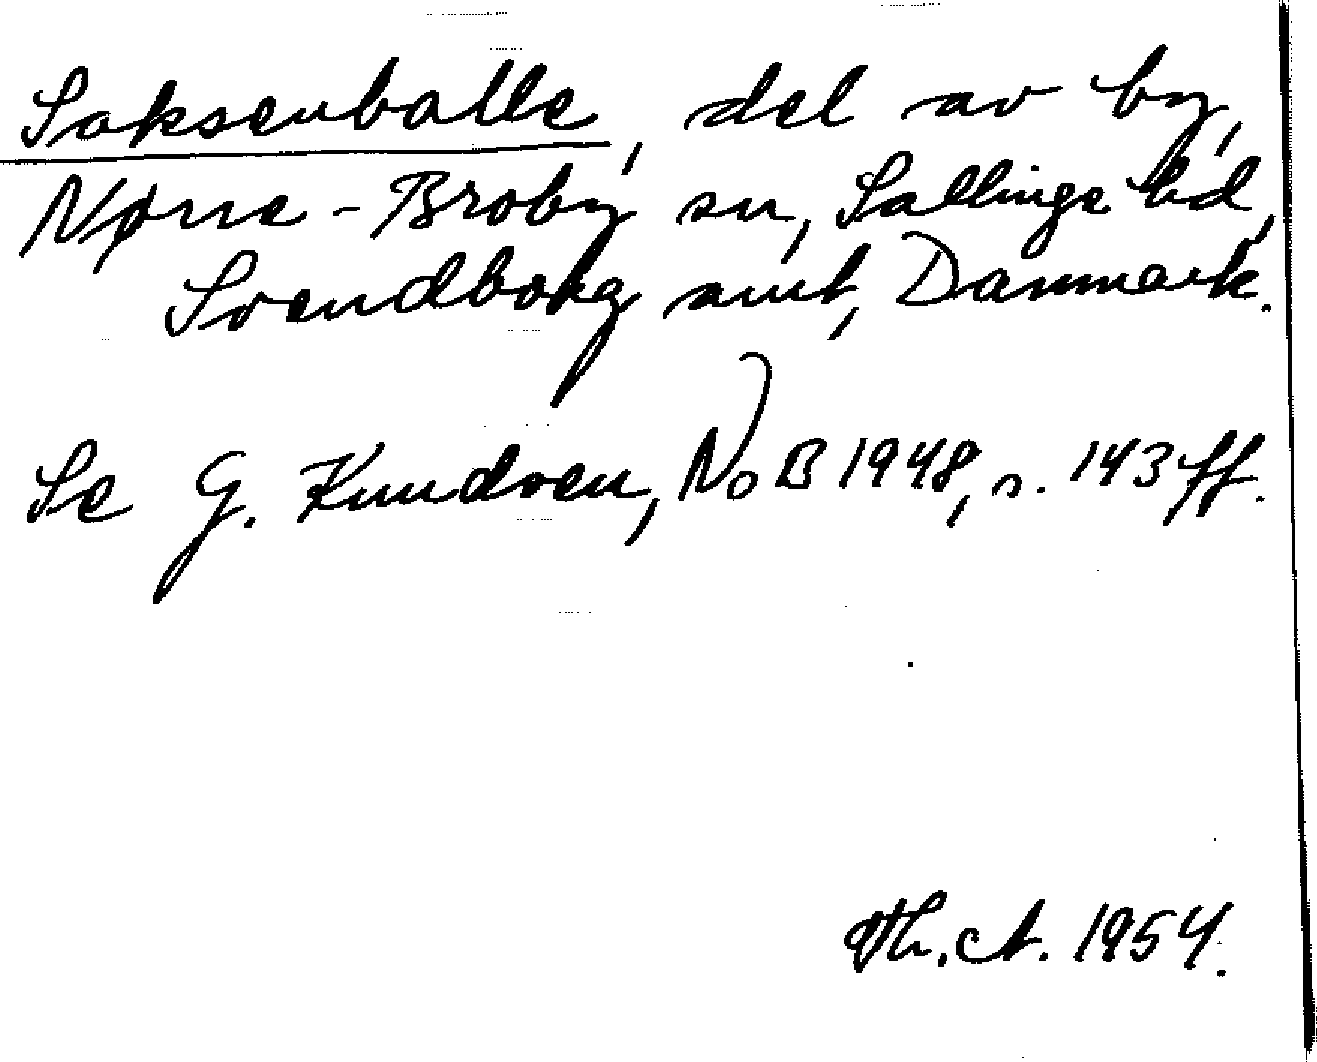 Saksenballe, del av by,
Nørre-Broby sn, Sallinge hd,
Svendborg amt, Danmark.
Se G. Knudsen, NoB 1948, s. 143 ff.
Th. A. 1954.